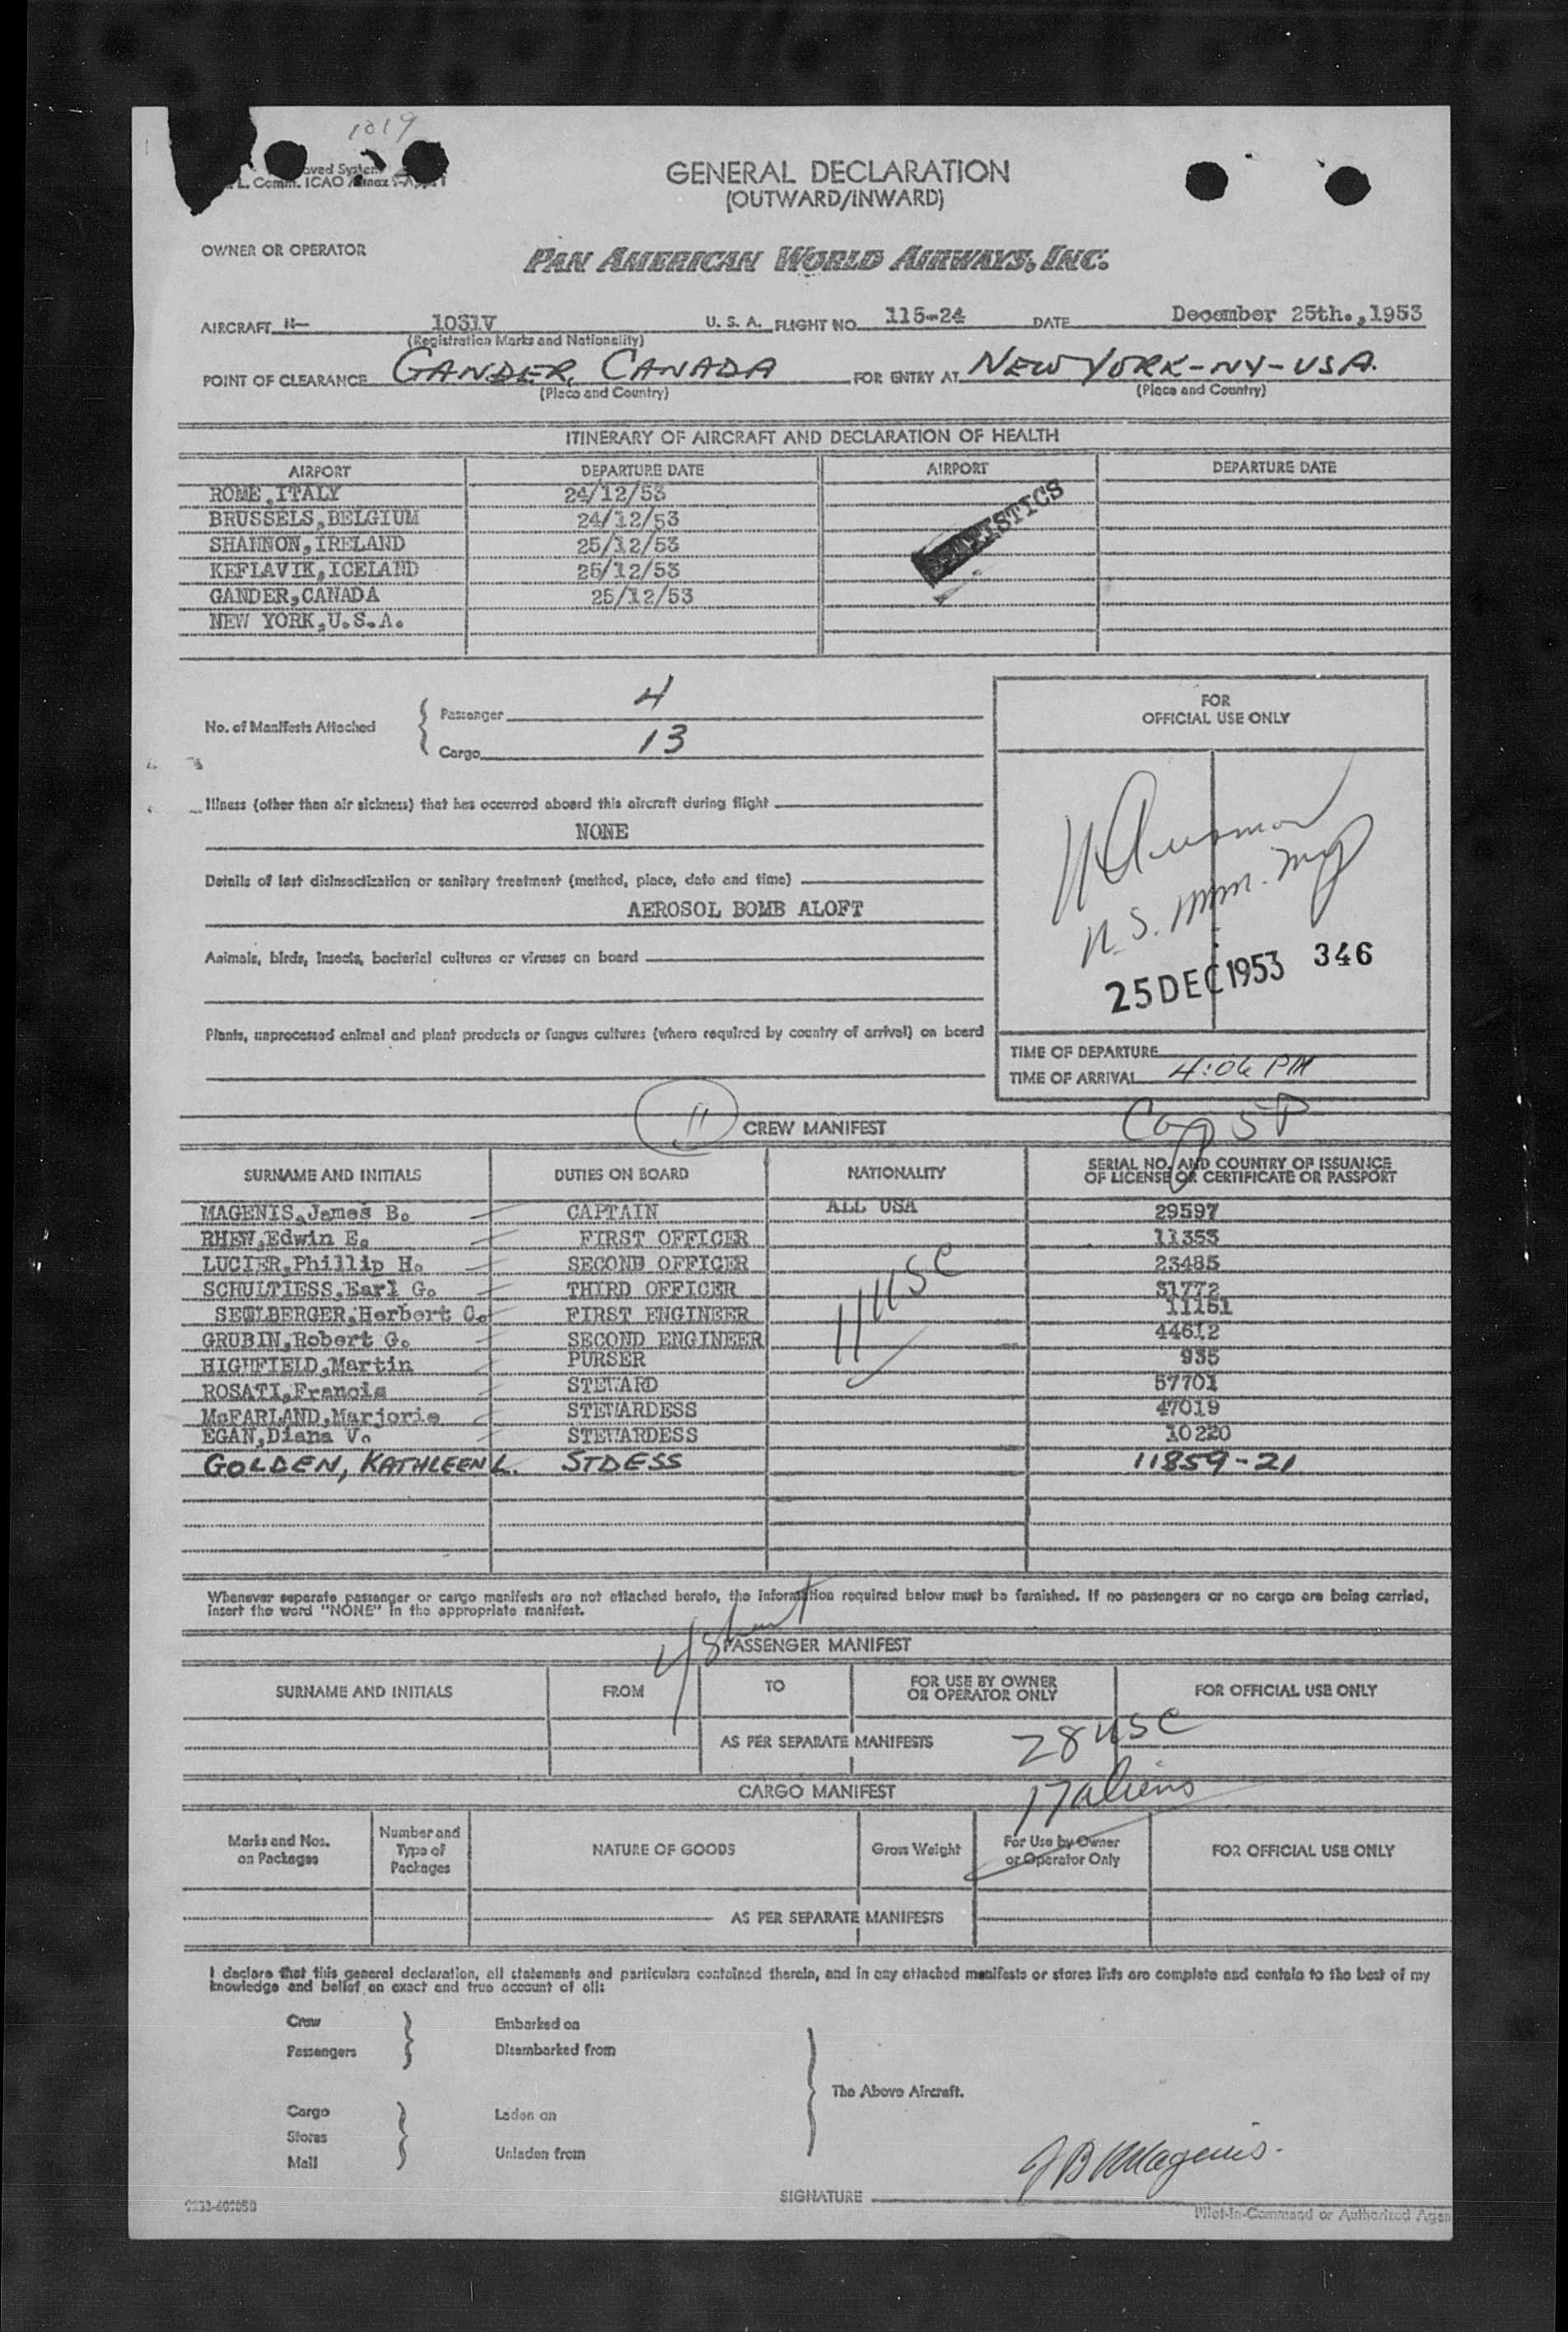 1019
GENERAL DECLARATION
(OUTWARD/INWARD)
OWNER OR OPERATOR
PAN AMERICAN WORLD AIRWAYS, INC.
AIRCRAFT N- 1031V U. S. A. FLIGHT NO. 115-24 DATE December 25th.,1953
(Registration Marks and Nationality)
POINT OF CLEARANCE GANDER, CANADA FOR ENTRY AT NEW YORK-NY-USA.
(Place and Country) (Place and Country)
ITINERARY OF AIRCRAFT AND DECLARATION OF HEALTH
AIRPORT DEPARTURE DATE AIRPORT DEPARTURE DATE
ROME,ITALY 24/12/53
BRUSSELS,BELGIUM 24/12/53
SHANNON,IRELAND 25/12/53
KEFLAVIK,ICELAND 25/12/53
GANDER,CANADA 25/12/53
NEW YORK,U.S.A.
STATISTICS
No. of Manifests Attached
Passenger 4
Cargo 13
FOR
OFFICIAL USE ONLY
Illness (other than air sickness) that has occurred aboard this aircraft during flight
NONE
Details of last disinsectization or sanitary treatment (method, place, date and time)
AEROSOL BOMB ALOFT
Animals, birds, insects, bacterial cultures or viruses on board
25 DEC 1953 346
Plants, unprocessed animal and plant products or fungus cultures (where required by country of arrival) on board
TIME OF DEPARTURE
TIME OF ARRIVAL 4:06 PM
11 CREW MANIFEST
SURNAME AND INITIALS DUTIES ON BOARD NATIONALITY SERIAL NO. AND COUNTRY OF ISSUANCE
OF LICENSE OR CERTIFICATE OR PASSPORT
MAGENIS,James B. CAPTAIN ALL USA 29597
RHEW,Edwin E. FIRST OFFICER 11353
LUCIER,Phillip H. SECOND OFFICER 23485
SCHULTIESS,Earl G. THIRD OFFICER 31772
SEMLBERGER,Herbert C. FIRST ENGINEER 11151
GRUBIN,Robert G. SECOND ENGINEER 44612
HIGHFIELD,Martin PURSER 935
ROSATI,Francis STEWARD 57701
McFARLAND,Marjorie STEWARDESS 47019
EGAN,Diana V. STEWARDESS 10220
GOLDEN, KATHLEEN L. STDESS 11859-21
11 USC
Whenever separate passenger or cargo manifests are not attached hereto, the information required below must be furnished. If no passengers or no cargo are being carried,
insert the word "NONE" in the appropriate manifest.
PASSENGER MANIFEST
SURNAME AND INITIALS FROM TO FOR USE BY OWNER
OR OPERATOR ONLY FOR OFFICIAL USE ONLY
AS PER SEPARATE MANIFESTS
28 USC
17 aliens
CARGO MANIFEST
Marks and Nos.
on Packages
Number and
Type of
Packages
NATURE OF GOODS
Gross Weight
For Use by Owner
or Operator Only
FOR OFFICIAL USE ONLY
AS PER SEPARATE MANIFESTS
I declare that this general declaration, all statements and particulars contained therein, and in any attached manifests or stores lists are complete and contain to the best of my
knowledge and belief an exact and true account of all:
Crew Embarked on
Passengers Disembarked from
The Above Aircraft.
Cargo Laden on
Stores
Mail Unladen from
SIGNATURE J B Magenis.
Pilot-in-Command or Authorized Agen